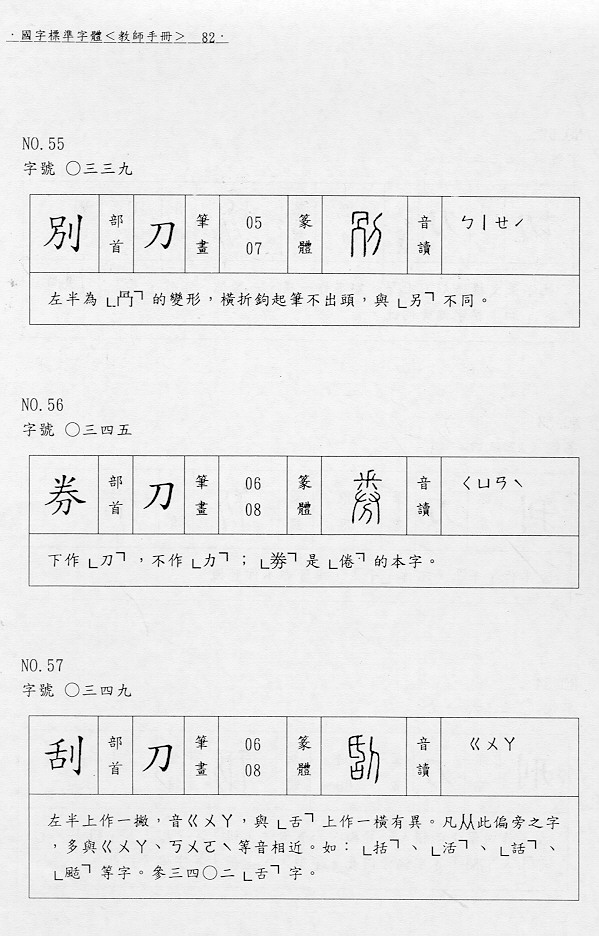 ·國字標準字體＜教師手冊＞ 82·
NO.55
字號 ○三三九
別 部首 刀 筆畫 05 07 篆體 音讀 ㄅㄧㄝˊ
左半為「冎」的變形，橫折鉤起筆不出頭，與「另」不同。
NO.56
字號 ○三四五
券 部首 刀 筆畫 06 08 篆體 音讀 ㄑㄩㄢˋ
下作「刀」，不作「力」；「劵」是「倦」的本字。
NO.57
字號 ○三四九
刮 部首 刀 筆畫 06 08 篆體 音讀 ㄍㄨㄚ
左半上作一撇，音ㄍㄨㄚ，與「舌」上作一橫有異。凡从此偏旁之字
，多與ㄍㄨㄚ、ㄎㄨㄛˋ等音相近。如：「括」、「活」、「話」、
「颳」等字。參三四○二「舌」字。